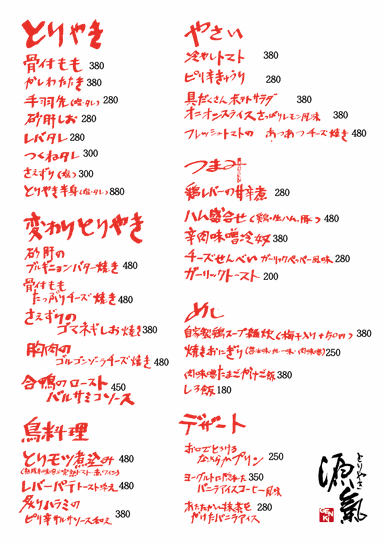 とりやき
骨付もも 380
かしわたたき 380
手羽先(塩・タレ) 280
砂肝しお 280
レバタレ 280
つくねタレ 300
さえずり(塩) 300
とりやき半身(塩・タレ) 880
変わりとりやき
砂肝の
ブルギニョンバター焼き 480
骨付もも
たっぷりチーズ焼き 480
さえずりの
ゴマネギしお焼き 380
胸肉の
ゴルゴンゾーラチーズ焼き 480
合鴨のロースト 450
バルサミコソース
鳥料理
とりモツ煮込み 480
レバーパテ(トースト添え) 480
炙りハラミの
ピリ辛サルサソース和え 380
やさい
冷やしトマト 380
ピリ辛きゅうり 280
具だくさんポテトサラダ 380
オニオンスライスさっぱりレモン風味 380
フレッシュトマトの あつあつチーズ焼き 480
つまみ
鶏レバーの甘辛煮 280
ハム盛合せ(鶏・生ハム・豚) 480
辛肉味噌冷奴 380
チーズせんべいガーリックペッパー風味 280
ガーリックトースト 200
めし
自家製鶏スープ雑炊(梅干入り+50円) 380
焼きおにぎり 250
肉味噌たまごかけご飯 380
しろ飯 180
デザート
お口でとろける
なめらかプリン 250
ヨーグルトに隠れた 350
バニラアイスコーヒー風味
あたたかい抹茶を 280
かけたバニラアイス
とりやき
源氣